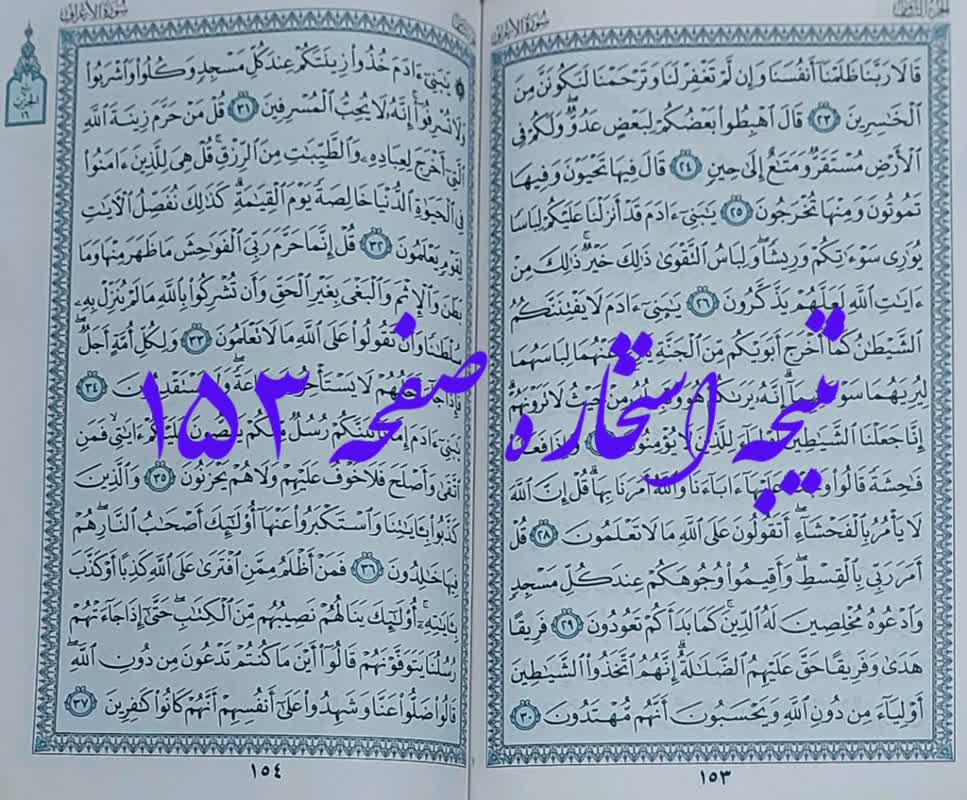 سُورَةُ الأَعْرَافِ
قَالَا رَبَّنَا ظَلَمْنَآ أَنفُسَنَا وَإِن لَّمْ تَغْفِرْ لَنَا وَتَرْحَمْنَا لَنَكُونَنَّ مِنَ
ٱلْخَٰسِرِينَ ٢٣ قَالَ ٱهْبِطُوا۟ بَعْضُكُمْ لِبَعْضٍ عَدُوٌّ وَلَكُمْ فِى
ٱلْأَرْضِ مُسْتَقَرٌّ وَمَتَٰعٌ إِلَىٰ حِينٍ ٢٤ قَالَ فِيهَا تَحْيَوْنَ وَفِيهَا
تَمُوتُونَ وَمِنْهَا تُخْرَجُونَ ٢٥ يَٰبَنِىٓ ءَادَمَ قَدْ أَنزَلْنَا عَلَيْكُمْ لِبَاسًا
يُوَٰرِى سَوْءَٰتِكُمْ وَرِيشًا وَلِبَاسُ ٱلتَّقْوَىٰ ذَٰلِكَ خَيْرٌ ذَٰلِكَ مِنْ
ءَايَٰتِ ٱللَّهِ لَعَلَّهُمْ يَذَّكَّرُونَ ٢٦ يَٰبَنِىٓ ءَادَمَ لَا يَفْتِنَنَّكُمُ
ٱلشَّيْطَٰنُ كَمَآ أَخْرَجَ أَبَوَيْكُم مِّنَ ٱلْجَنَّةِ عَنْهُمَا لِبَاسَهُمَا
لِيُرِيَهُمَا إِنَّهُۥ يَرَىٰكُمْ هُوَ مِنْ حَيْثُ لَا تَرَوْنَهُمْ
إِنَّا جَعَلْنَا ٱلشَّيَٰطِينَ لَا يُؤْمِنُونَ
فَٰحِشَةً قَالُوا۟ عَلَيْهَآ ءَابَآءَنَا وَٱللَّهُ أَمَرَنَا بِهَا قُلْ إِنَّ ٱللَّهَ
لَا يَأْمُرُ بِٱلْفَحْشَآءِ أَتَقُولُونَ عَلَى ٱللَّهِ مَا لَا تَعْلَمُونَ ٢٨ قُلْ
أَمَرَ رَبِّى بِٱلْقِسْطِ وَأَقِيمُوا۟ وُجُوهَكُمْ عِندَ كُلِّ مَسْجِدٍ
وَٱدْعُوهُ مُخْلِصِينَ لَهُ ٱلدِّينَ كَمَا بَدَأَكُمْ تَعُودُونَ ٢٩ فَرِيقًا
هَدَىٰ وَفَرِيقًا حَقَّ عَلَيْهِمُ ٱلضَّلَٰلَةُ إِنَّهُمُ ٱتَّخَذُوا۟ ٱلشَّيَٰطِينَ
أَوْلِيَآءَ مِن دُونِ ٱللَّهِ وَيَحْسَبُونَ أَنَّهُم مُّهْتَدُونَ ٣٠
١٥٣
سُورَةُ الأَعْرَافِ
يَٰبَنِىٓ ءَادَمَ خُذُوا۟ زِينَتَكُمْ عِندَ كُلِّ مَسْجِدٍ وَكُلُوا۟ وَٱشْرَبُوا۟
وَلَا تُسْرِفُوٓا۟ إِنَّهُۥ لَا يُحِبُّ ٱلْمُسْرِفِينَ ٣١ قُلْ مَنْ حَرَّمَ زِينَةَ ٱللَّهِ
ٱلَّتِىٓ أَخْرَجَ لِعِبَادِهِۦ وَٱلطَّيِّبَٰتِ مِنَ ٱلرِّزْقِ قُلْ هِىَ لِلَّذِينَ ءَامَنُوا۟
فِى ٱلْحَيَوٰةِ ٱلدُّنْيَا خَالِصَةً يَوْمَ ٱلْقِيَٰمَةِ كَذَٰلِكَ نُفَصِّلُ ٱلْءَايَٰتِ
لِقَوْمٍ يَعْلَمُونَ ٣٢ قُلْ إِنَّمَا حَرَّمَ رَبِّىَ ٱلْفَوَٰحِشَ مَا ظَهَرَ مِنْهَا وَمَا
بَطَنَ وَٱلْإِثْمَ وَٱلْبَغْىَ بِغَيْرِ ٱلْحَقِّ وَأَن تُشْرِكُوا۟ بِٱللَّهِ مَا لَمْ يُنَزِّلْ بِهِۦ
سُلْطَٰنًا وَأَن تَقُولُوا۟ عَلَى ٱللَّهِ مَا لَا تَعْلَمُونَ ٣٣ وَلِكُلِّ أُمَّةٍ أَجَلٌ
فَإِذَا لَا يَسْتَأْخِرُونَ ٣٤
يَٰبَنِىٓ ءَادَمَ إِمَّا يَأْتِيَنَّكُمْ رُسُلٌ مِّنكُمْ يَقُصُّونَ عَلَيْكُمْ ءَايَٰتِى فَمَنِ
ٱتَّقَىٰ وَأَصْلَحَ فَلَا خَوْفٌ عَلَيْهِمْ وَلَا هُمْ يَحْزَنُونَ ٣٥ وَٱلَّذِينَ
كَذَّبُوا۟ بِـَٔايَٰتِنَا وَٱسْتَكْبَرُوا۟ عَنْهَآ أُو۟لَٰٓئِكَ أَصْحَٰبُ ٱلنَّارِ هُمْ
فِيهَا خَٰلِدُونَ ٣٦ فَمَنْ أَظْلَمُ مِمَّنِ ٱفْتَرَىٰ عَلَى ٱللَّهِ كَذِبًا أَوْ كَذَّبَ
بِـَٔايَٰتِهِۦٓ أُو۟لَٰٓئِكَ يَنَالُهُمْ نَصِيبُهُم مِّنَ ٱلْكِتَٰبِ حَتَّىٰٓ إِذَا جَآءَتْهُمْ
رُسُلُنَا يَتَوَفَّوْنَهُمْ قَالُوٓا۟ أَيْنَ مَا كُنتُمْ تَدْعُونَ مِن دُونِ ٱللَّهِ
قَالُوا۟ ضَلُّوا۟ عَنَّا وَشَهِدُوا۟ عَلَىٰٓ أَنفُسِهِمْ أَنَّهُمْ كَانُوا۟ كَٰفِرِينَ ٣٧
١٥٤
نتیجه استخاره صفحه ۱۵۳